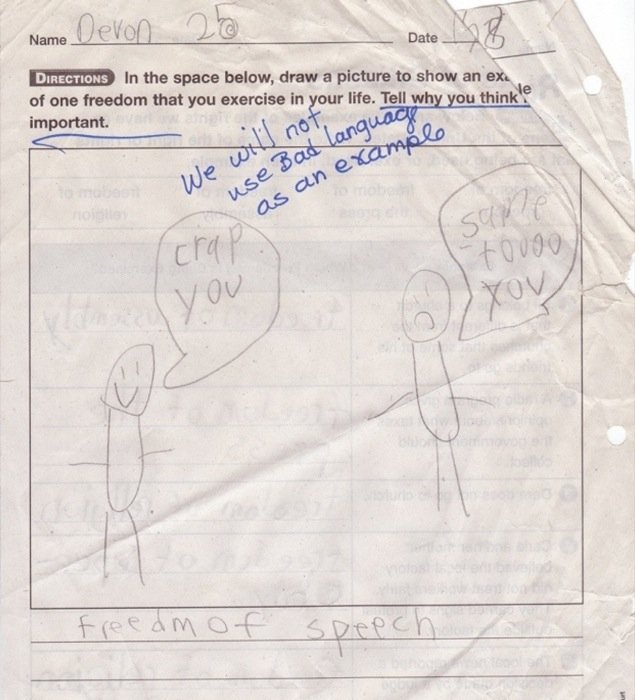 Name Devon 25 Date 1/28
DIRECTIONS In the space below, draw a picture to show an
of one freedom that you exercise in your life. Tell why you think
important.
We will not
use Bad language
as an example
crap
you
same
toooo
you
freedm of speech